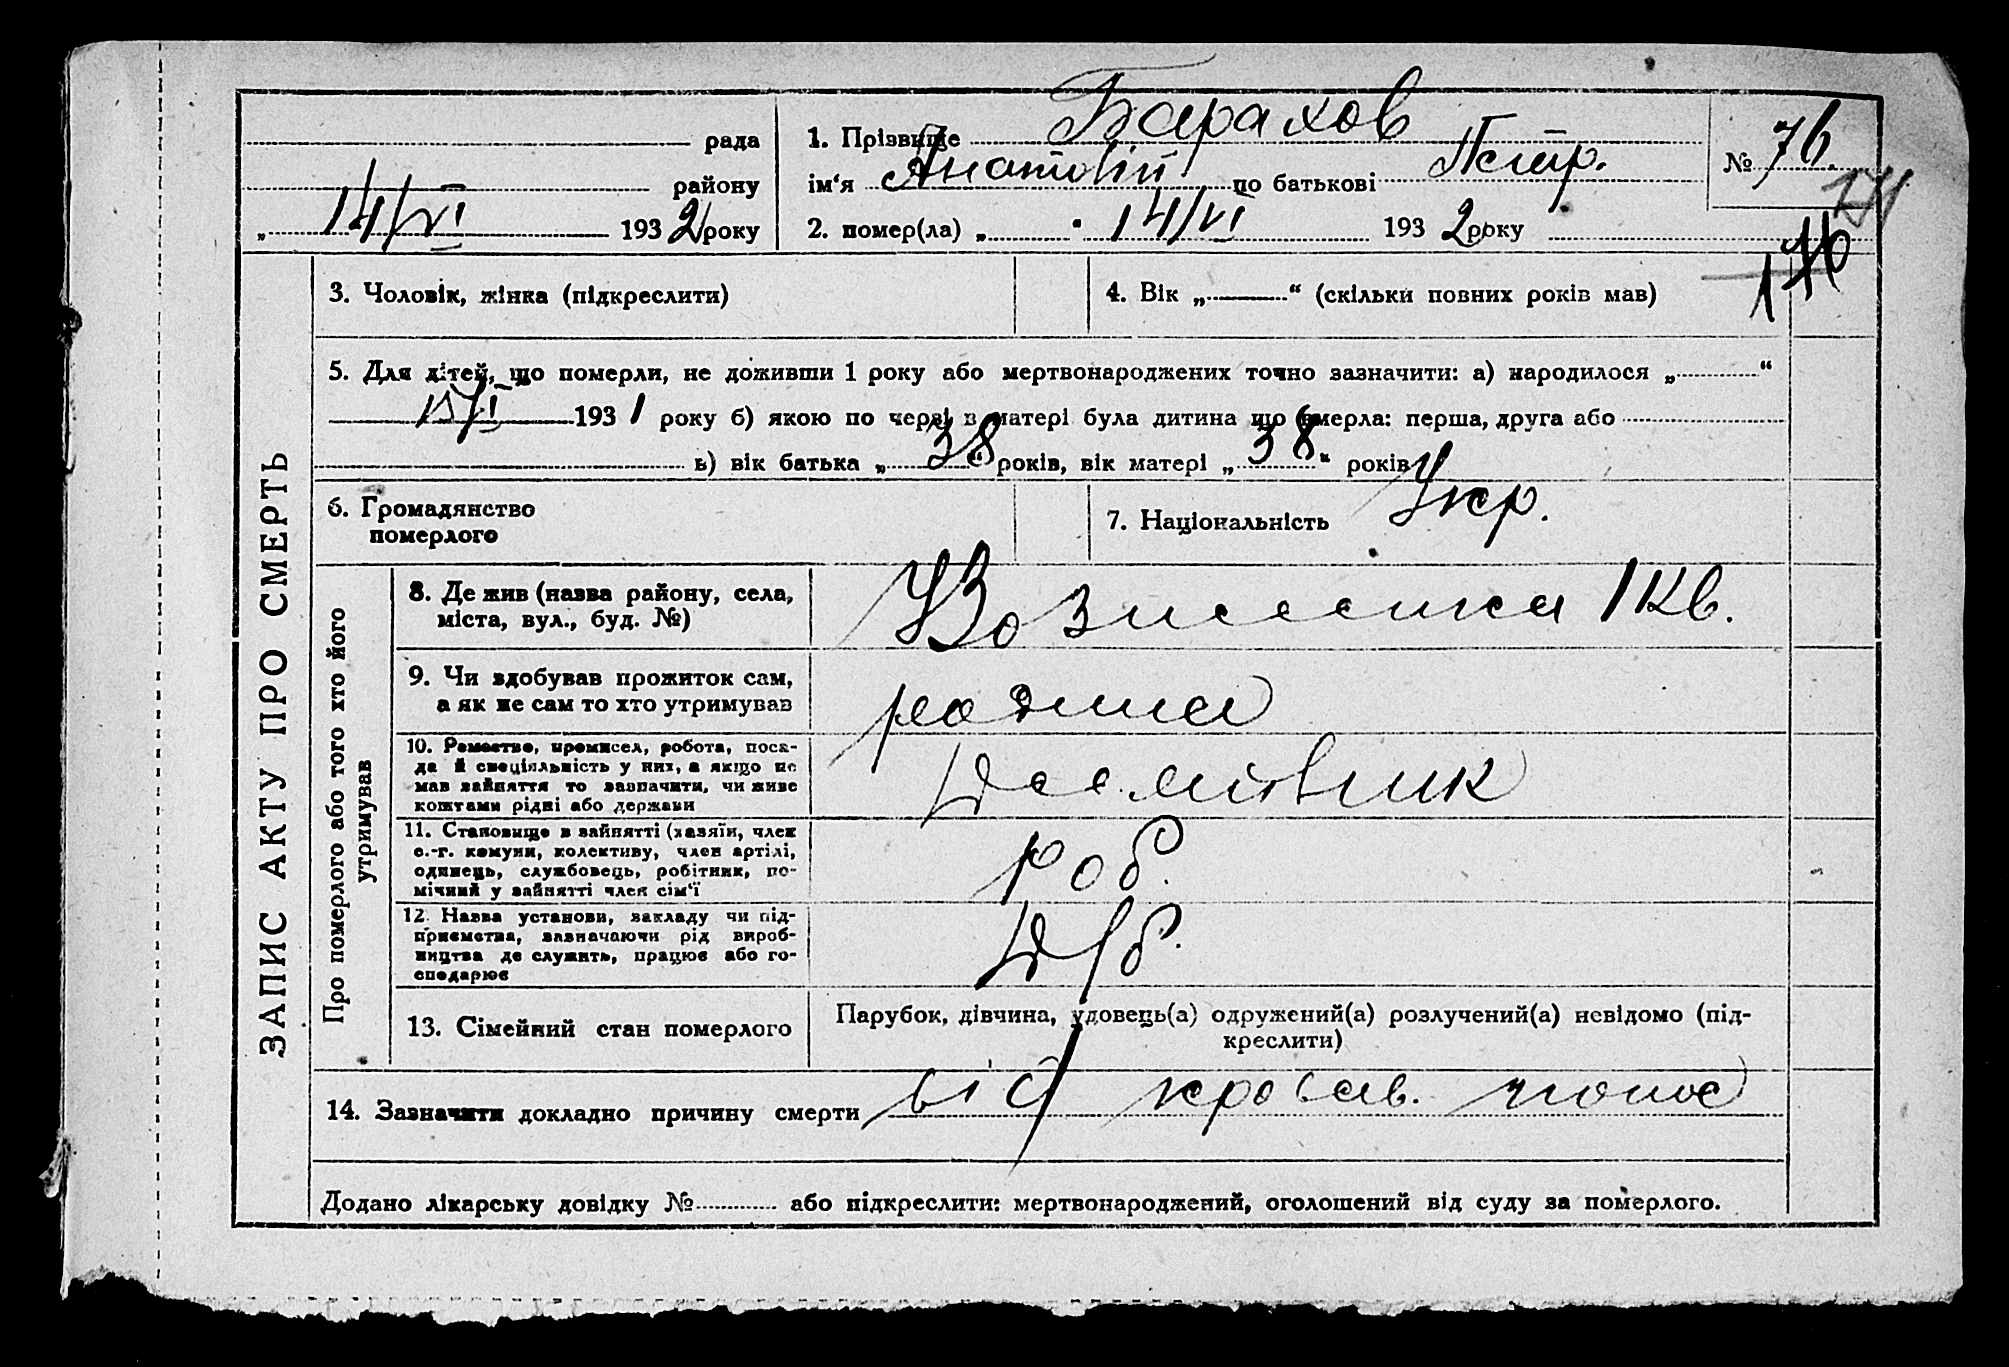 ЗАПИС АКТУ ПРО СМЕРТЬ
рада
району
„ 14/VI 1932 року
1. Прізвище Барахов
ім‘я Анатолій по батькові Петр.
2. помер(ла) „ “ 14/VI 1932 року
№ 76.
176
3. Чоловік, жінка (підкреслити)
4. Вік „ “ (скільки повних років мав)
5. Для дітей, що померли, не доживши 1 року або мертвонароджених точно зазначити: а) народилося „ “
1931 року б) якою по черзі в матері була дитина що вмерла: перша, друга або
в) вік батька „38“ років, вік матері „38“ років
6. Громадянство
померлого
7. Національність Укр.
Про померлого або того хто його
утримував
8. Де жив (назва району, села,
міста, вул., буд. №)
Вознесенка 1 кв.
9. Чи здобував прожиток сам,
а як не сам то хто утримував
родина
10. Ремество, промисел, робота, поса-
да й спеціяльність у них, а якщо не
мав зайняття то зазначити, чи живе
коштами рідні або держави
11. Становище в зайнятті (хазяїн, член
с.-г. комуни, колективу, член артілі,
одинець, службовець, робітник, по-
мічний у зайнятті член сім‘ї
роб.
12. Назва установи, закладу чи під-
приємства, зазначаючи рід вироб-
ництва де служить, працює або го-
сподарює
13. Сімейний стан померлого
Парубок, дівчина, удовець(а) одружений(а) розлучений(а) невідомо (під-
креслити)
14. Зазначити докладно причину смерти від кровав. понос
Додано лікарську довідку № або підкреслити: мертвонароджений, оголошений від суду за померлого.